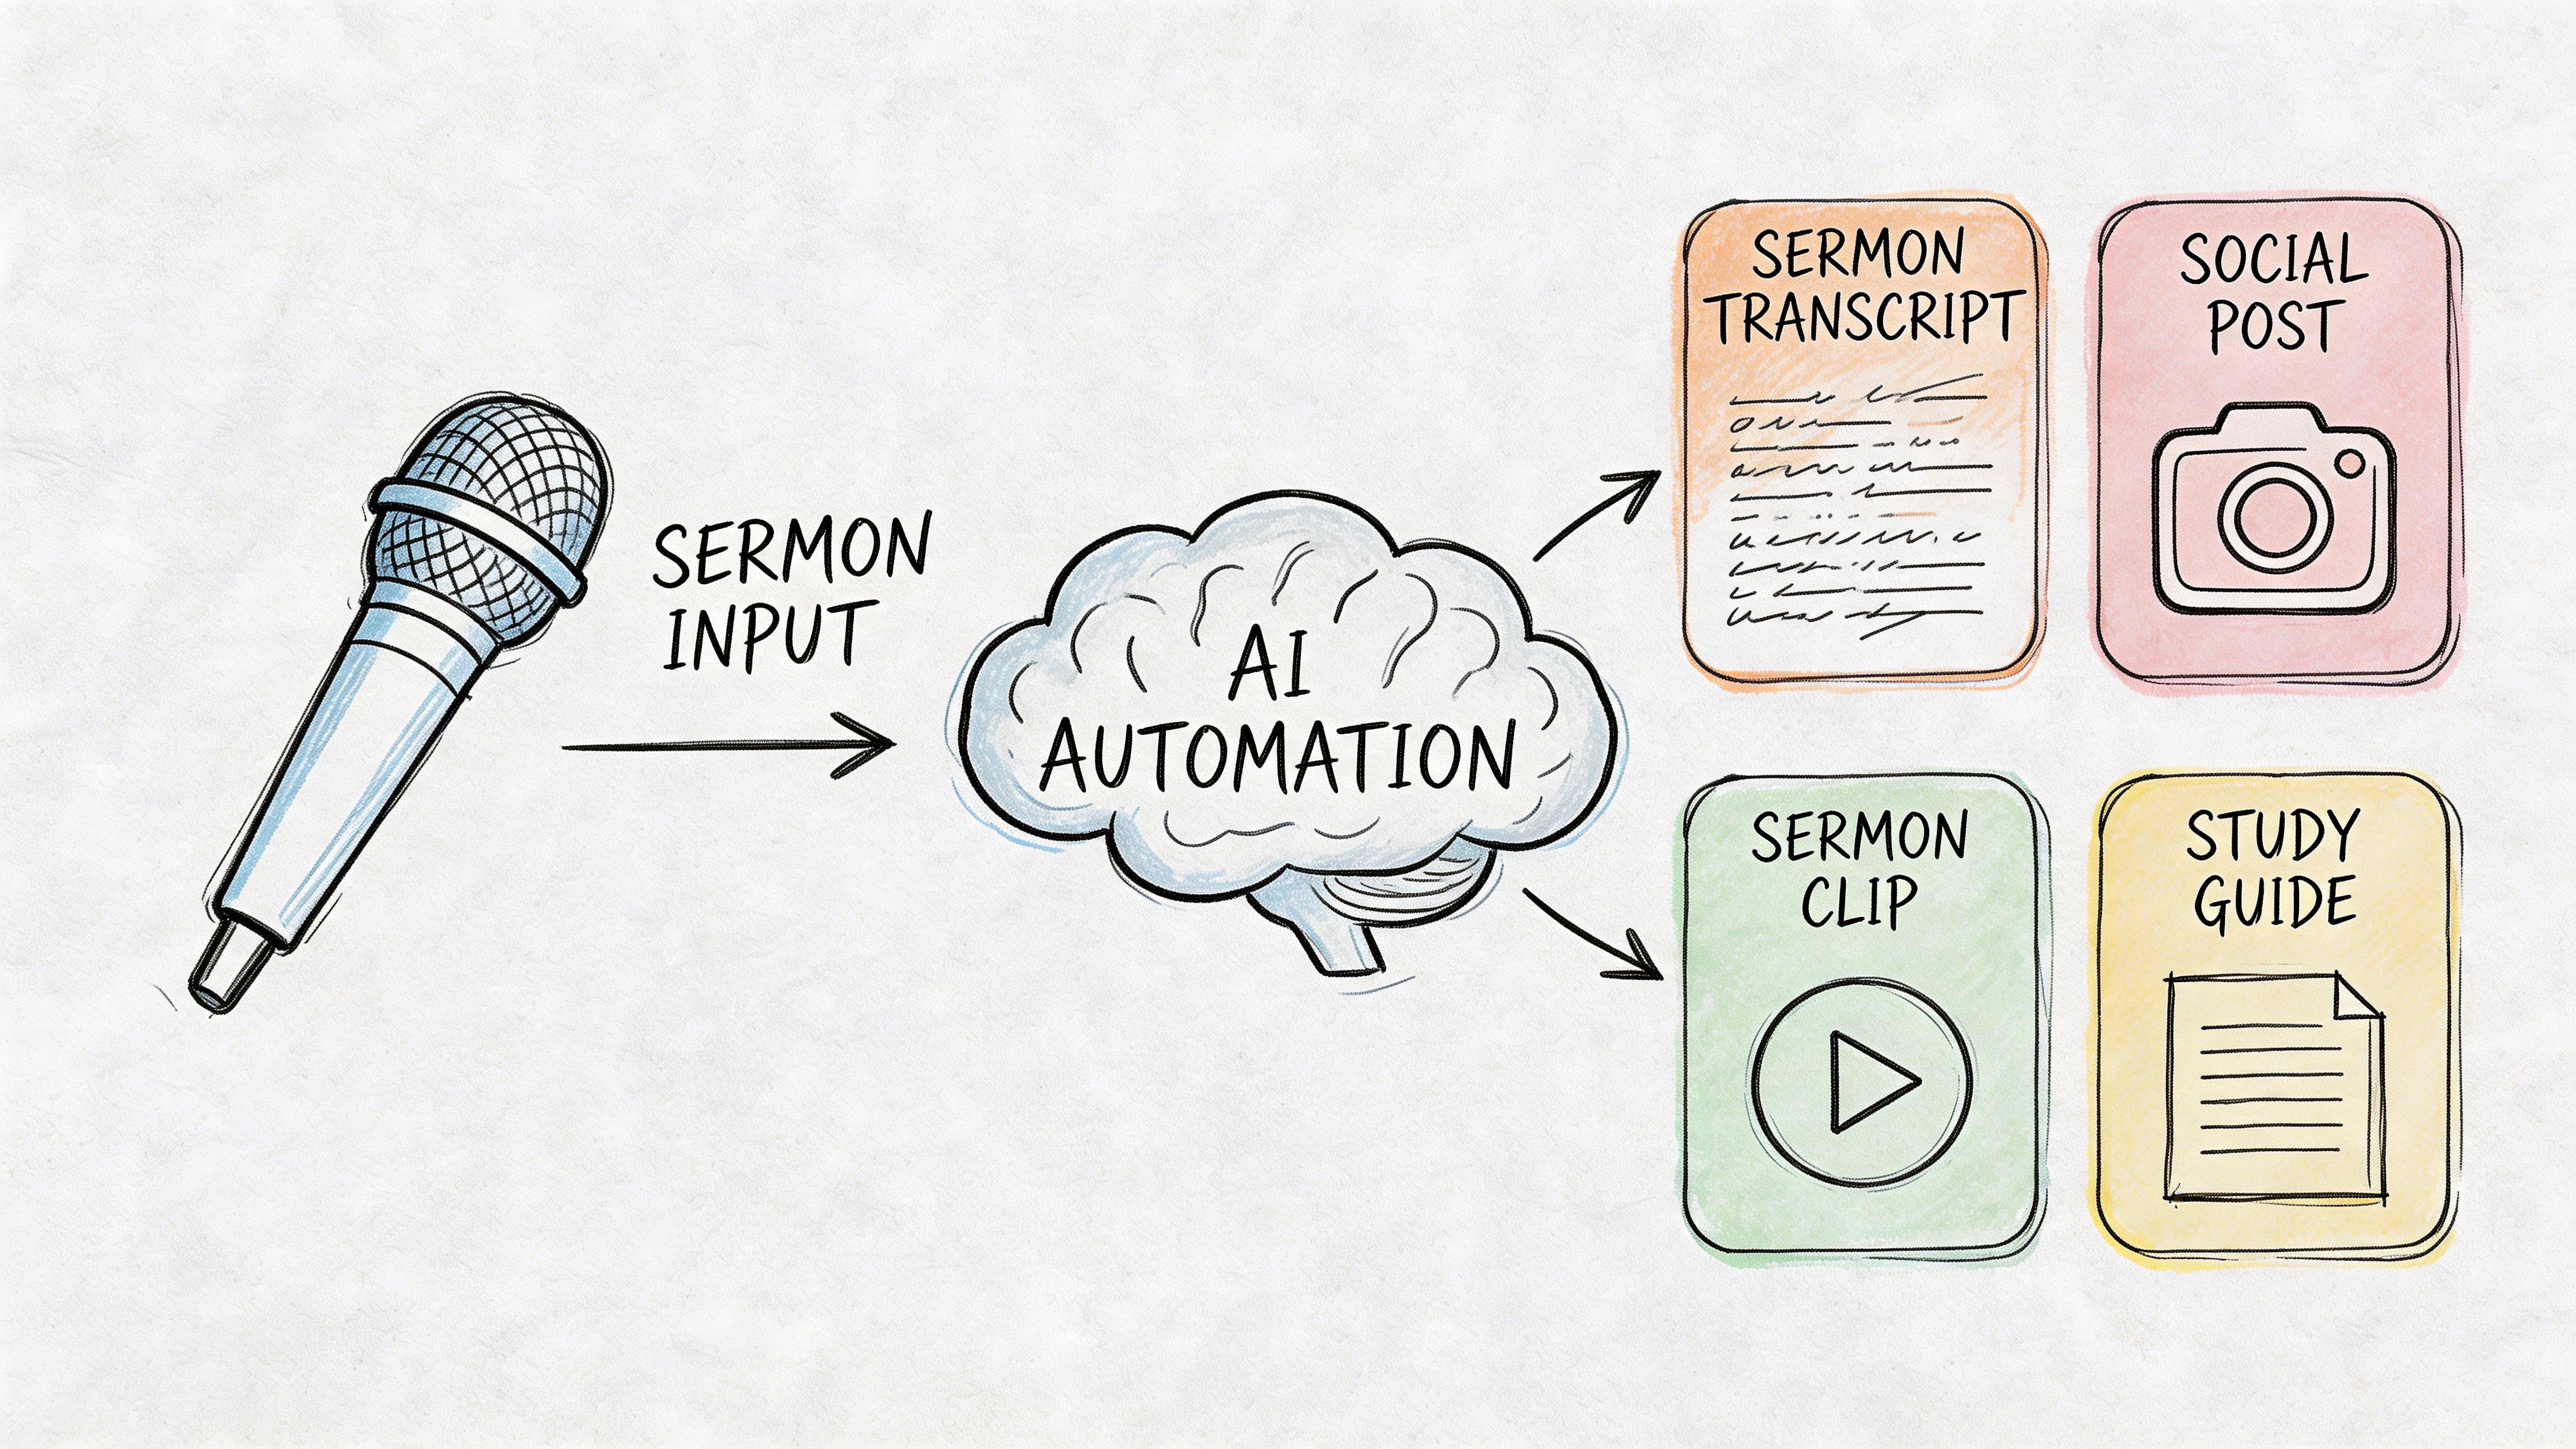 SERMON
INPUT
AI
AUTOMATION
SERMON
TRANSCRIPT
SOCIAL
POST
SERMON
CLIP
STUDY
GUIDE